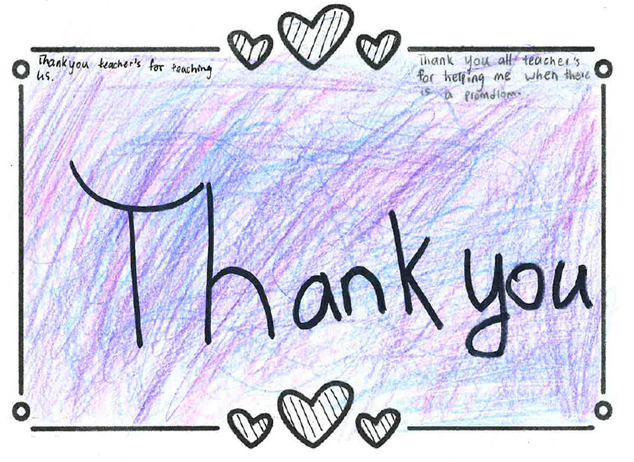 Thankyou teacher's for teaching
us.
Thank you all teacher's
for helping me when there
is a promdlom.
Thank you